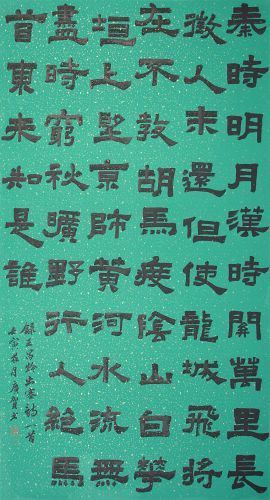 秦時明月漢時關萬里長
徵人未還但使龍城飛將
在不教胡馬度陰山白華
垣上望京師黃河水流無
盡時窮秋曠野行人絕馬
首東來知是誰
錄王昌齡出塞詩二首
壬寅桂月